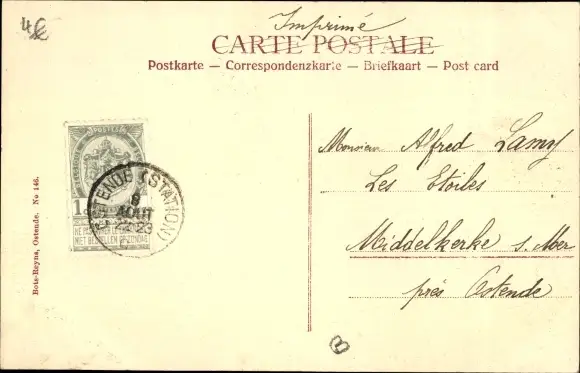 4€
Imprimé
CARTE POSTALE
Postkarte — Correspondenzkarte — Briefkaart — Post card
POSTES
1
NE PAS LIVRER LE DIMANCHE
NIET BESTELLEN OP ZONDAG
OSTENDE (STATION)
8
AOUT
22-23
Monsieur Alfred Lamy
Les Etoiles
Middelkerke s. Mer
près Ostende
Bote-Reyns, Ostende. No 146.